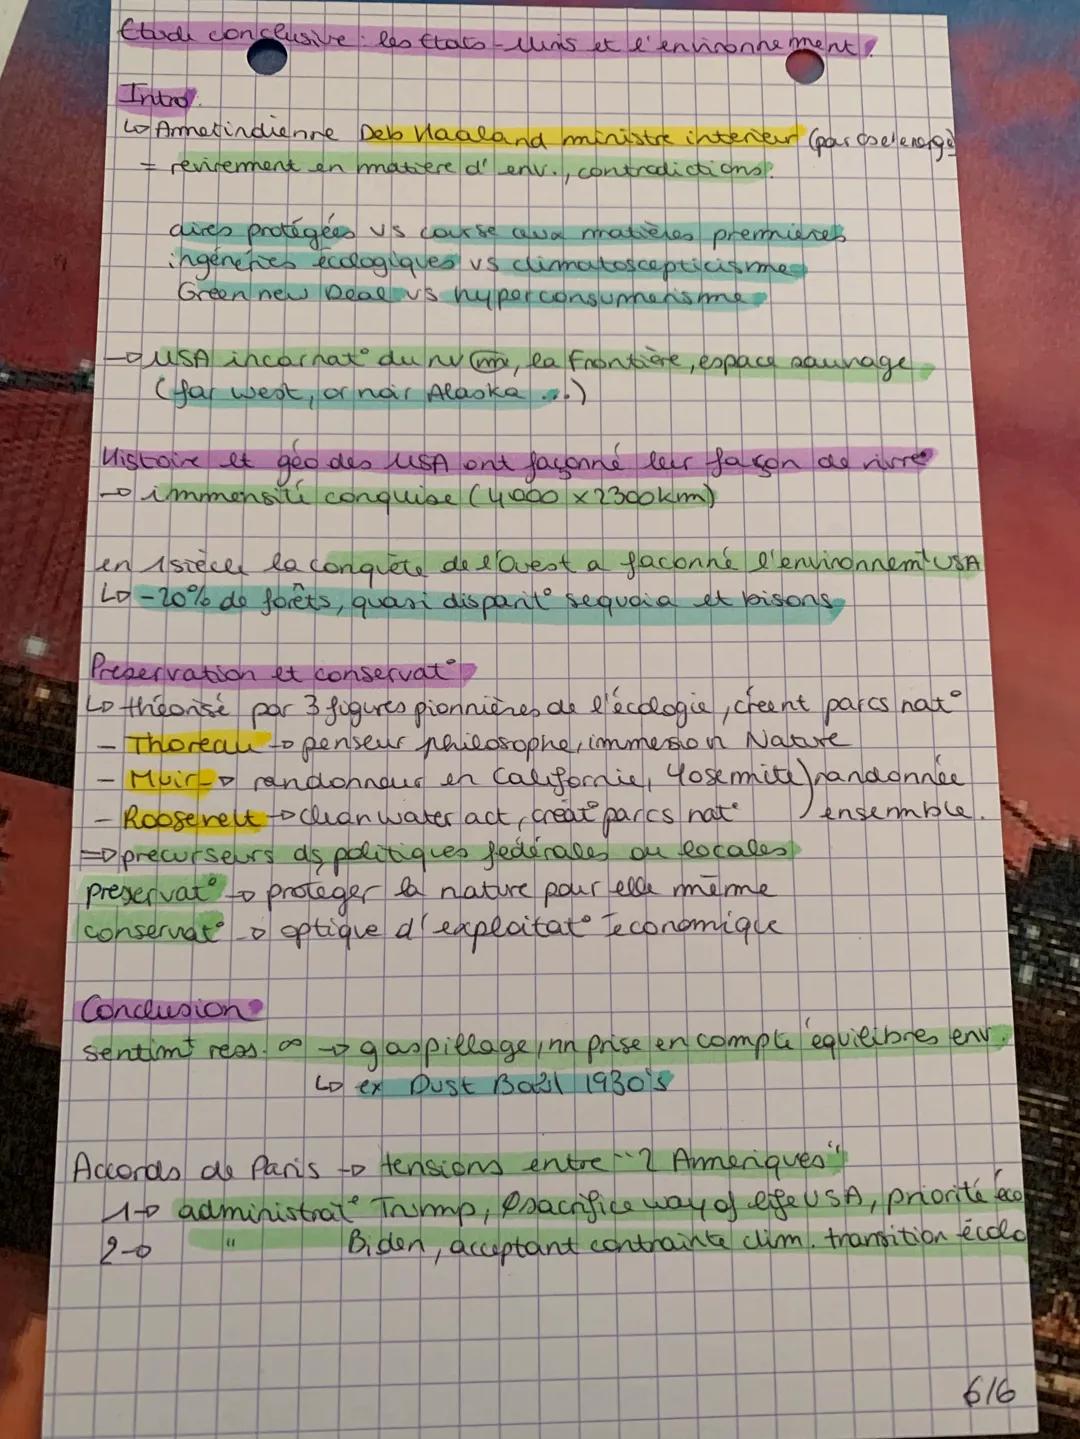 Etude conclusive : les Etats-Unis et l'environnement.
Intro.
↳ Amérindienne Deb Haaland ministre interieur (par
= revirement en matière d'env., contradictions.
aires protégées vs course aux matières premières
ingénieries écologiques vs climatoscepticisme
Green new Deal vs hyperconsumérisme
→ USA incarnat° du nv , la Frontière, espace sauvage
(far west, or noir Alaska ...)
Histoire et géo des USA ont façonné leur façon de vivre
→ immensité conquise (4000 x 2300km)
en siècle la conquête de l'Ouest a façonné l'environnemt USA
↳ -20% de forêts, quasi disparit° sequoia et bisons
Préservation et conservat°
↳ théorisé par 3 figures pionnières de l'écologie, créent parcs nat°
- Thoreau → penseur philosophe, immersion Nature
- Muir → randonneur en Californie, Yosemite) randonnée
- Roosevelt → clean water act, créat° parcs nat° ) ensemble.
=> précurseurs ds politiques fédérales ou locales
préservat° → protéger la nature pour elle même
conservat° → optique d'exploitat° économique
Conclusion
sentimt ress. ∞ → gaspillage, nn prise en compte équilibres env.
↳ ex Dust Bowl 1930's
Accords de Paris → tensions entre "2 Amériques"
1→ administrat° Trump, sacrifice way of life USA, priorité éco
2→ " Biden, acceptant contrainte clim. transition écolo
6/6